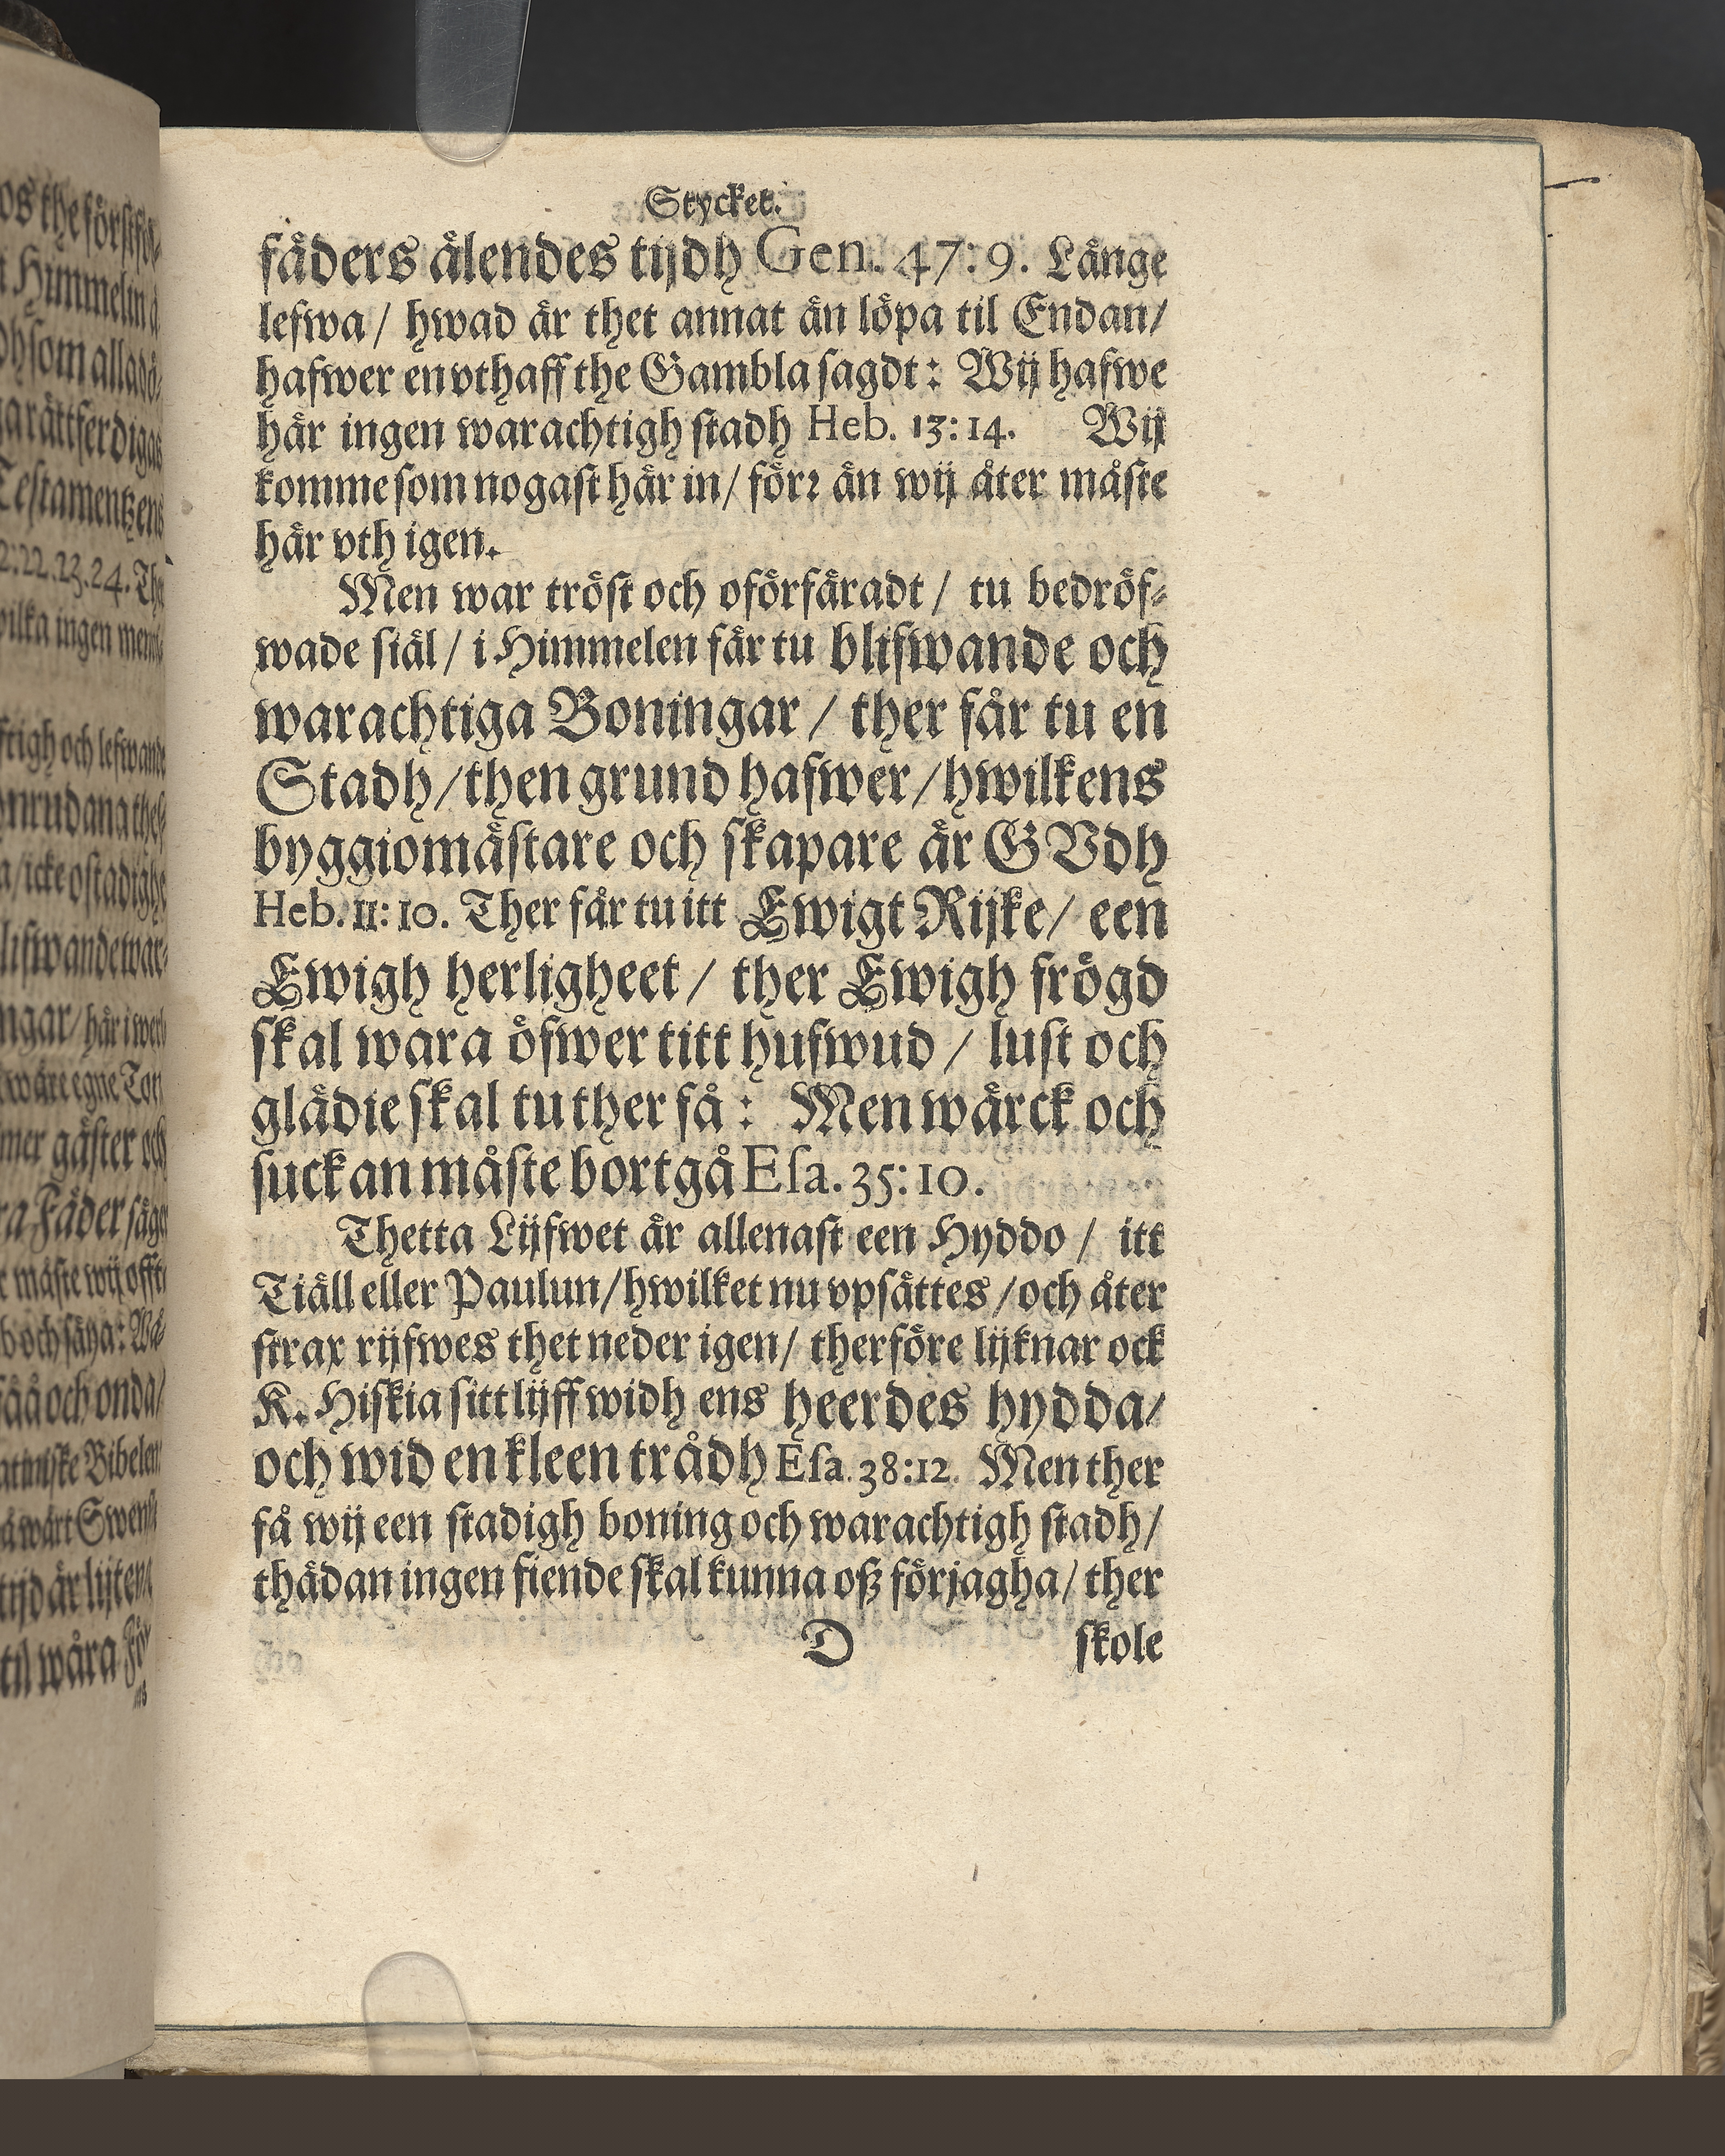 Stycket.
fäders älendes tijdh Gen. 47:9. Länge
lefwa / hwad är thet annat än löpa til Endan /
hafwer en vthaff the Gambla sagdt: Wij hafwe
här ingen warachtigh stadh Heb. 13:14. Wij
komme som nogast här in / förr än wij åter måste
här vth igen.
Men war tröst och oförfäradt / tu bedröf-
wade siäl / i Himmelen får tu blifwande och
warachtiga Boningar / ther får tu en
Stadh / then grund hafwer / hwilkens
byggiomästare och skapare är GVdh
Heb. 11:10. Ther får tu itt Ewigt Rijke / een
Ewigh herligheet / ther Ewigh frögd
skal wara öfwer titt hufwud / lust och
glädie skal tu ther få: Men wärck och
suckan måste bortgå Esa. 35:10.
Thetta Lijfwet är allenast een Hyddo / itt
Tiäll eller Paulun / hwilket nu vpsättes / och åter
strax rijfwes thet neder igen / therföre lijknar ock
K. Hiskia sitt lijff widh ens heerdes hydda /
och wid en kleen trådh Esa. 38:12. Men ther
få wij een stadigh boning och warachtigh stadh /
thädan ingen fiende skal kunna oß förjagha / ther
D skole